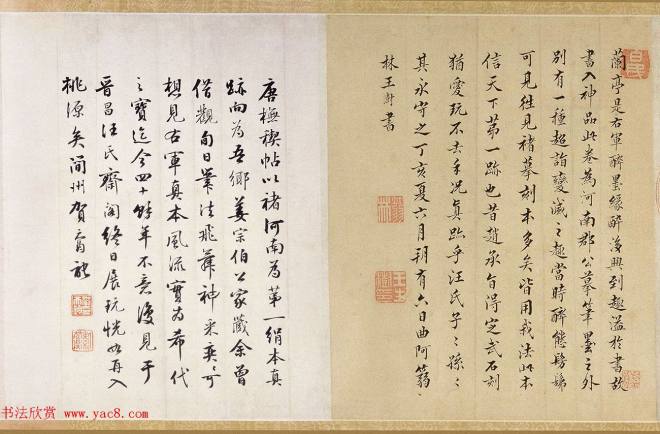 蘭亭是右軍醉墨緣醉後興到趣溢於書故
書入神品此卷為河南郡公摹筆墨之外
別有一種超詣變滅之趣當時醉態髣髴
可見往見褚摹刻本多矣皆用我法此本
信天下第一跡也昔趙承旨得定武石刻
猶愛玩不去手況真跡乎汪氏子子孫孫
其永守之丁亥夏六月朔有六日曲阿蒻
林王澍書
唐橅禊帖以褚河南為第一絹本真
跡向為吾鄉姜宗伯公家藏余曾
借觀旬日筆法飛舞神采奕奕可
想見右軍真本風流實為希代
之寶迄今四十餘年不意復見于
晉昌汪氏齋閣終日展玩恍如再入
桃源矣簡州賀
書法欣賞 www.yac8.com